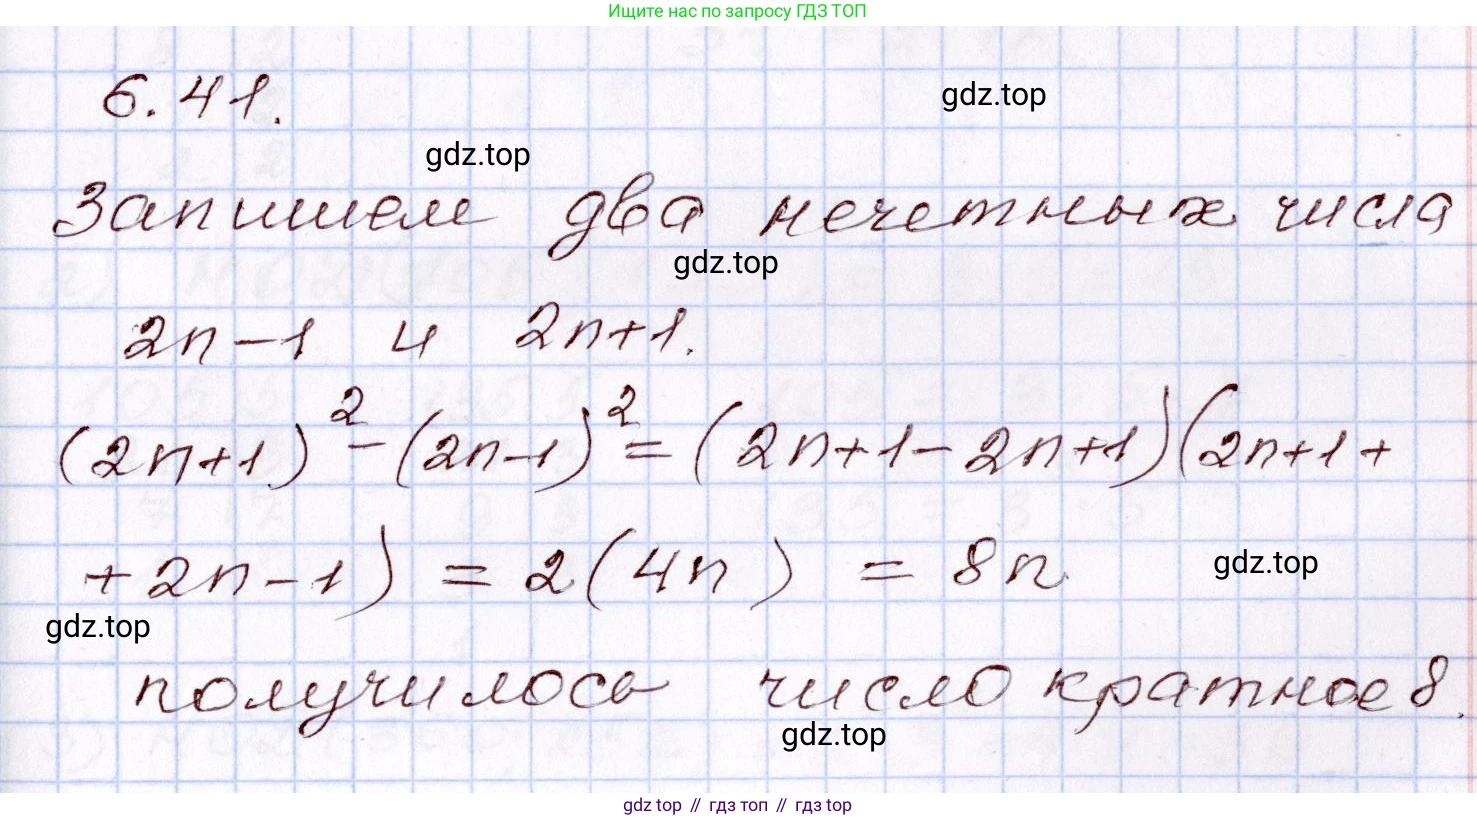 Ищите нас по запросу ГДЗ ТОП
6.41.
gdz.top
gdz.top
Запишем два нечетных числа
gdz.top
2n-1 и 2n+1.
(2n+1)²-(2n-1)²=(2n+1-2n+1)(2n+1+
+2n-1) = 2(4n) = 8n
gdz.top
gdz.top
получилось число кратное 8.
gdz.top
gdz top // гдз топ // гдз top